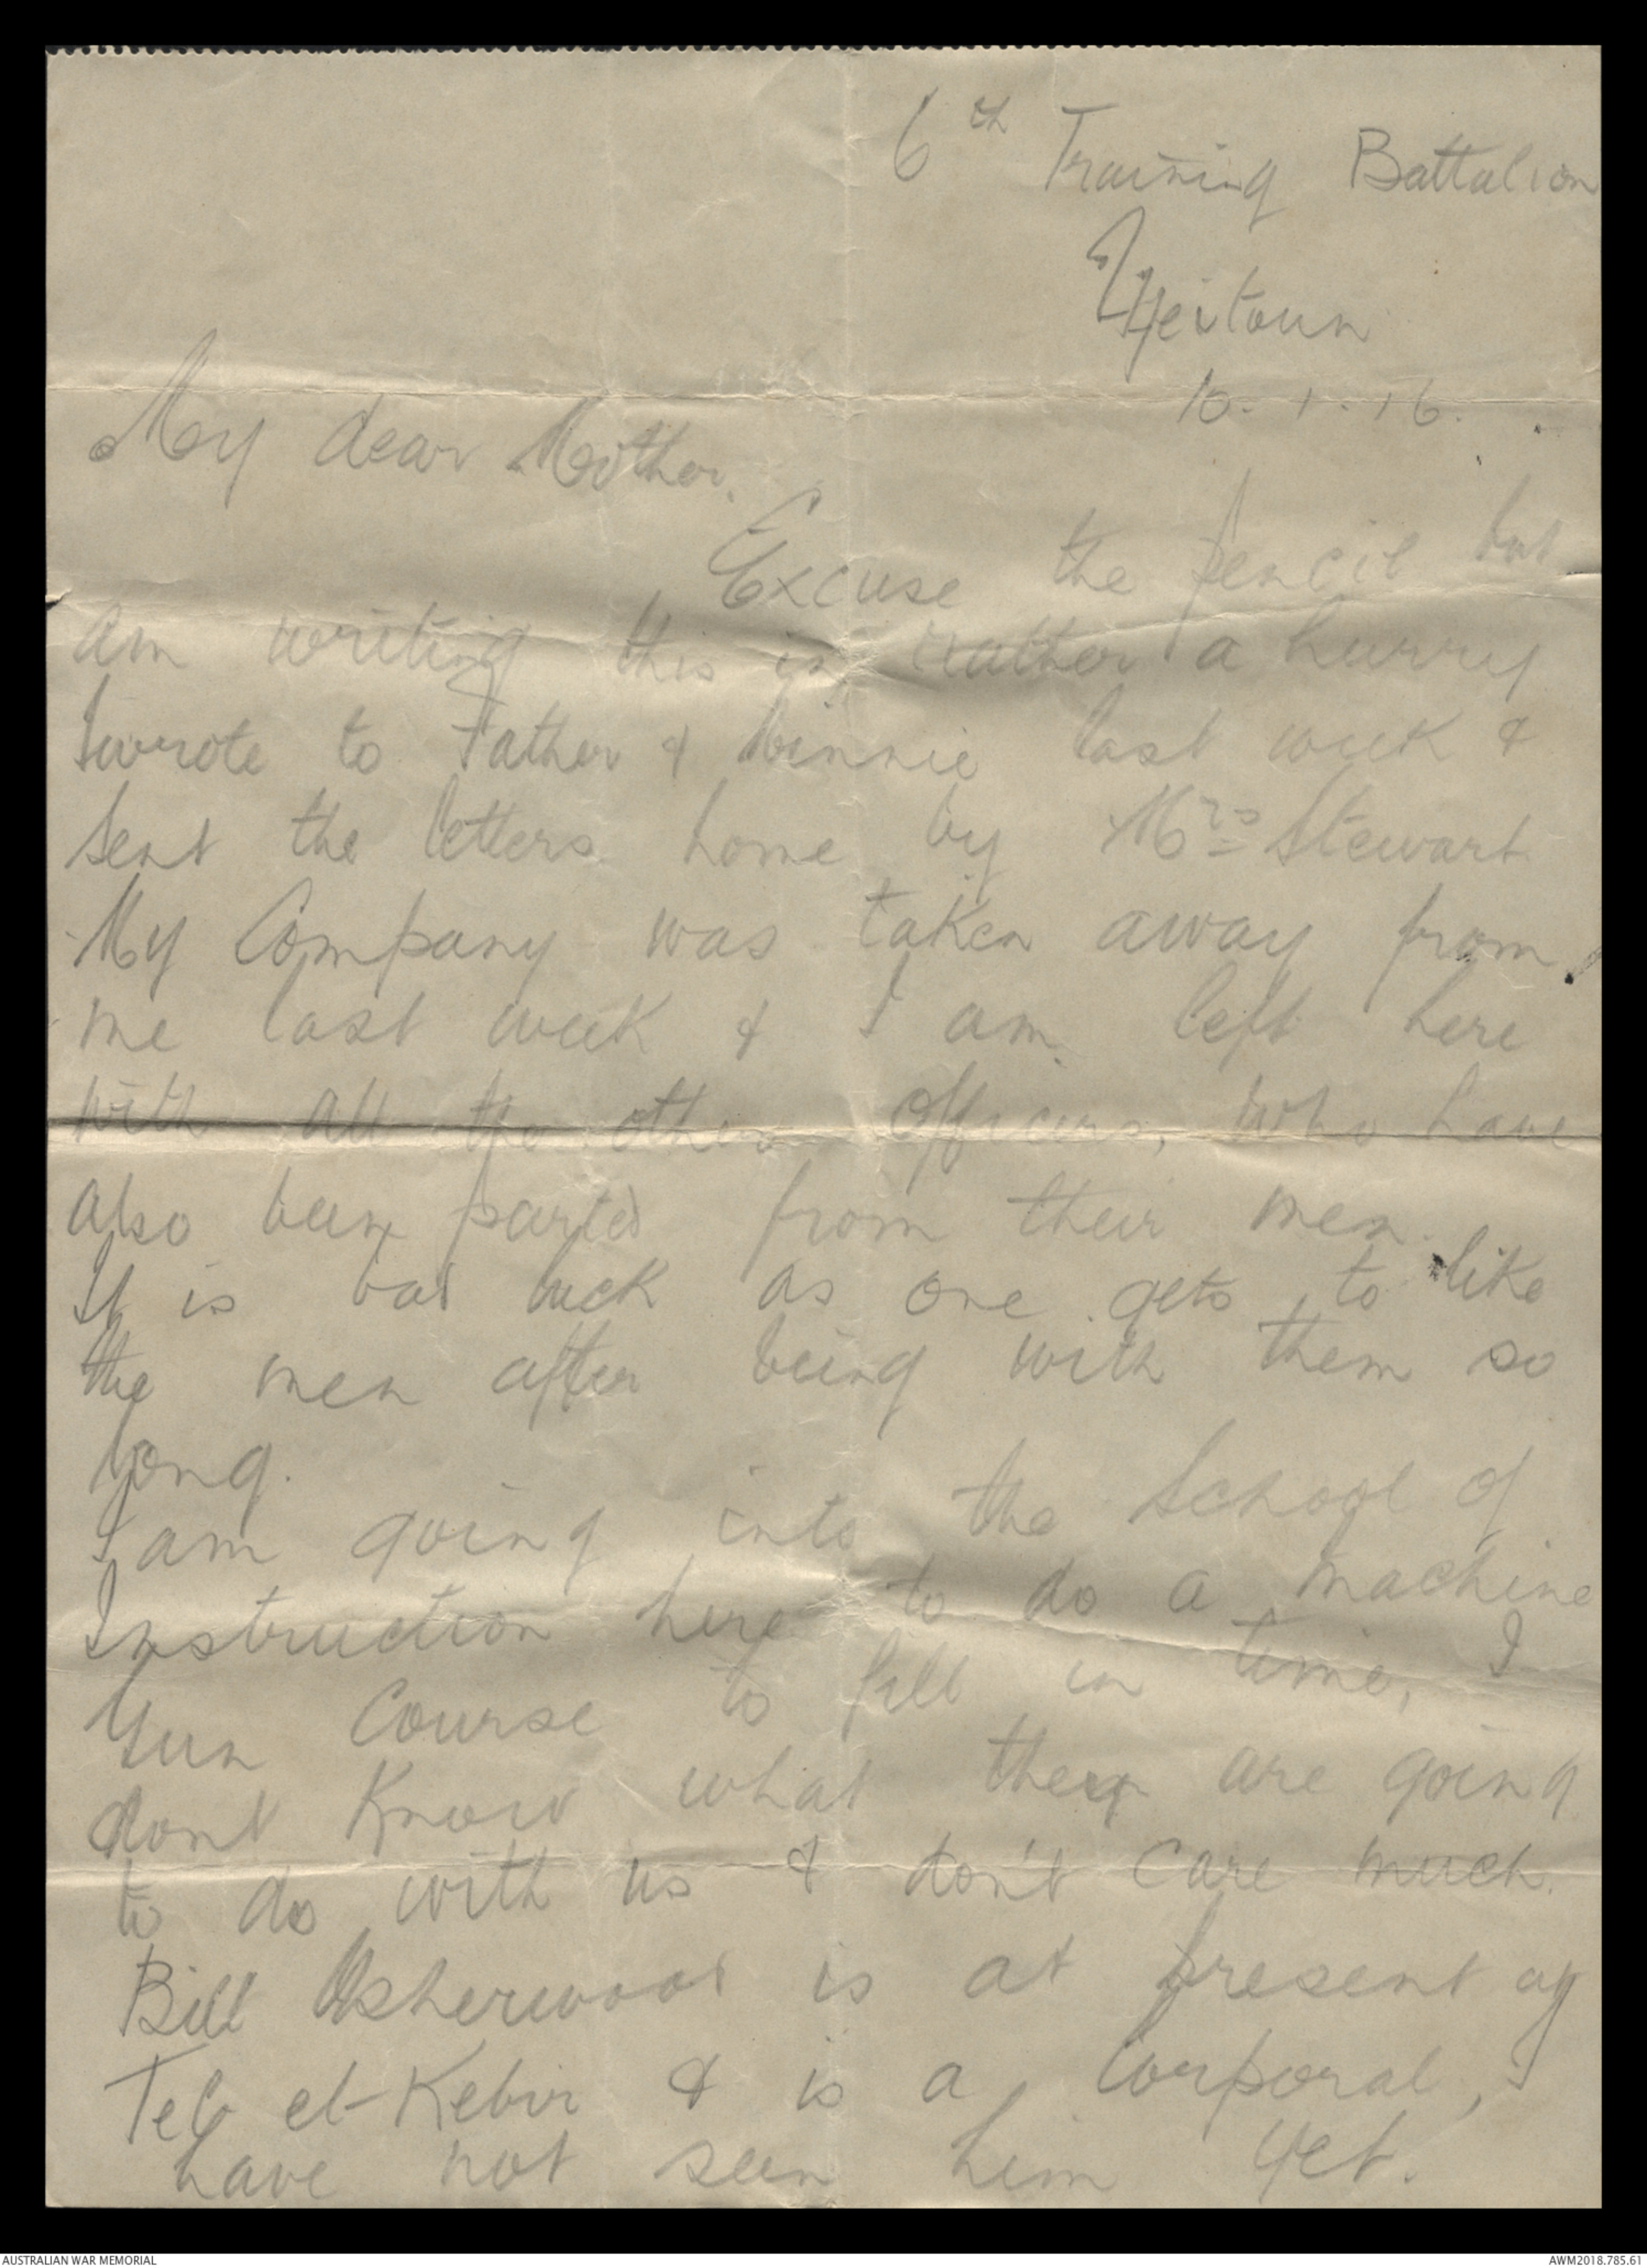 6th Training Battalion
Zeitoun
10.1.16.
My dear Mother.
Excuse the pencil but
am writing this in rather a hurry
I wrote to Father & Winnie last week &
sent the letters home by Mrs Stewart
My Company was taken away from
me last week & I am left here
with all the other Officers, who have
also been parted from their men.
It is bad luck as one gets to like
the men after being with them so
long.
I am going into the School of
Instruction here to do a machine
Gun Course to fill in time, I
dont know what they are going
to do with us & don't care much.
Bill Usherwood is at present at
Tel el-Kebir & is a Corporal, I
have not seen him yet.
AUSTRALIAN WAR MEMORIAL
AWM2018.785.61